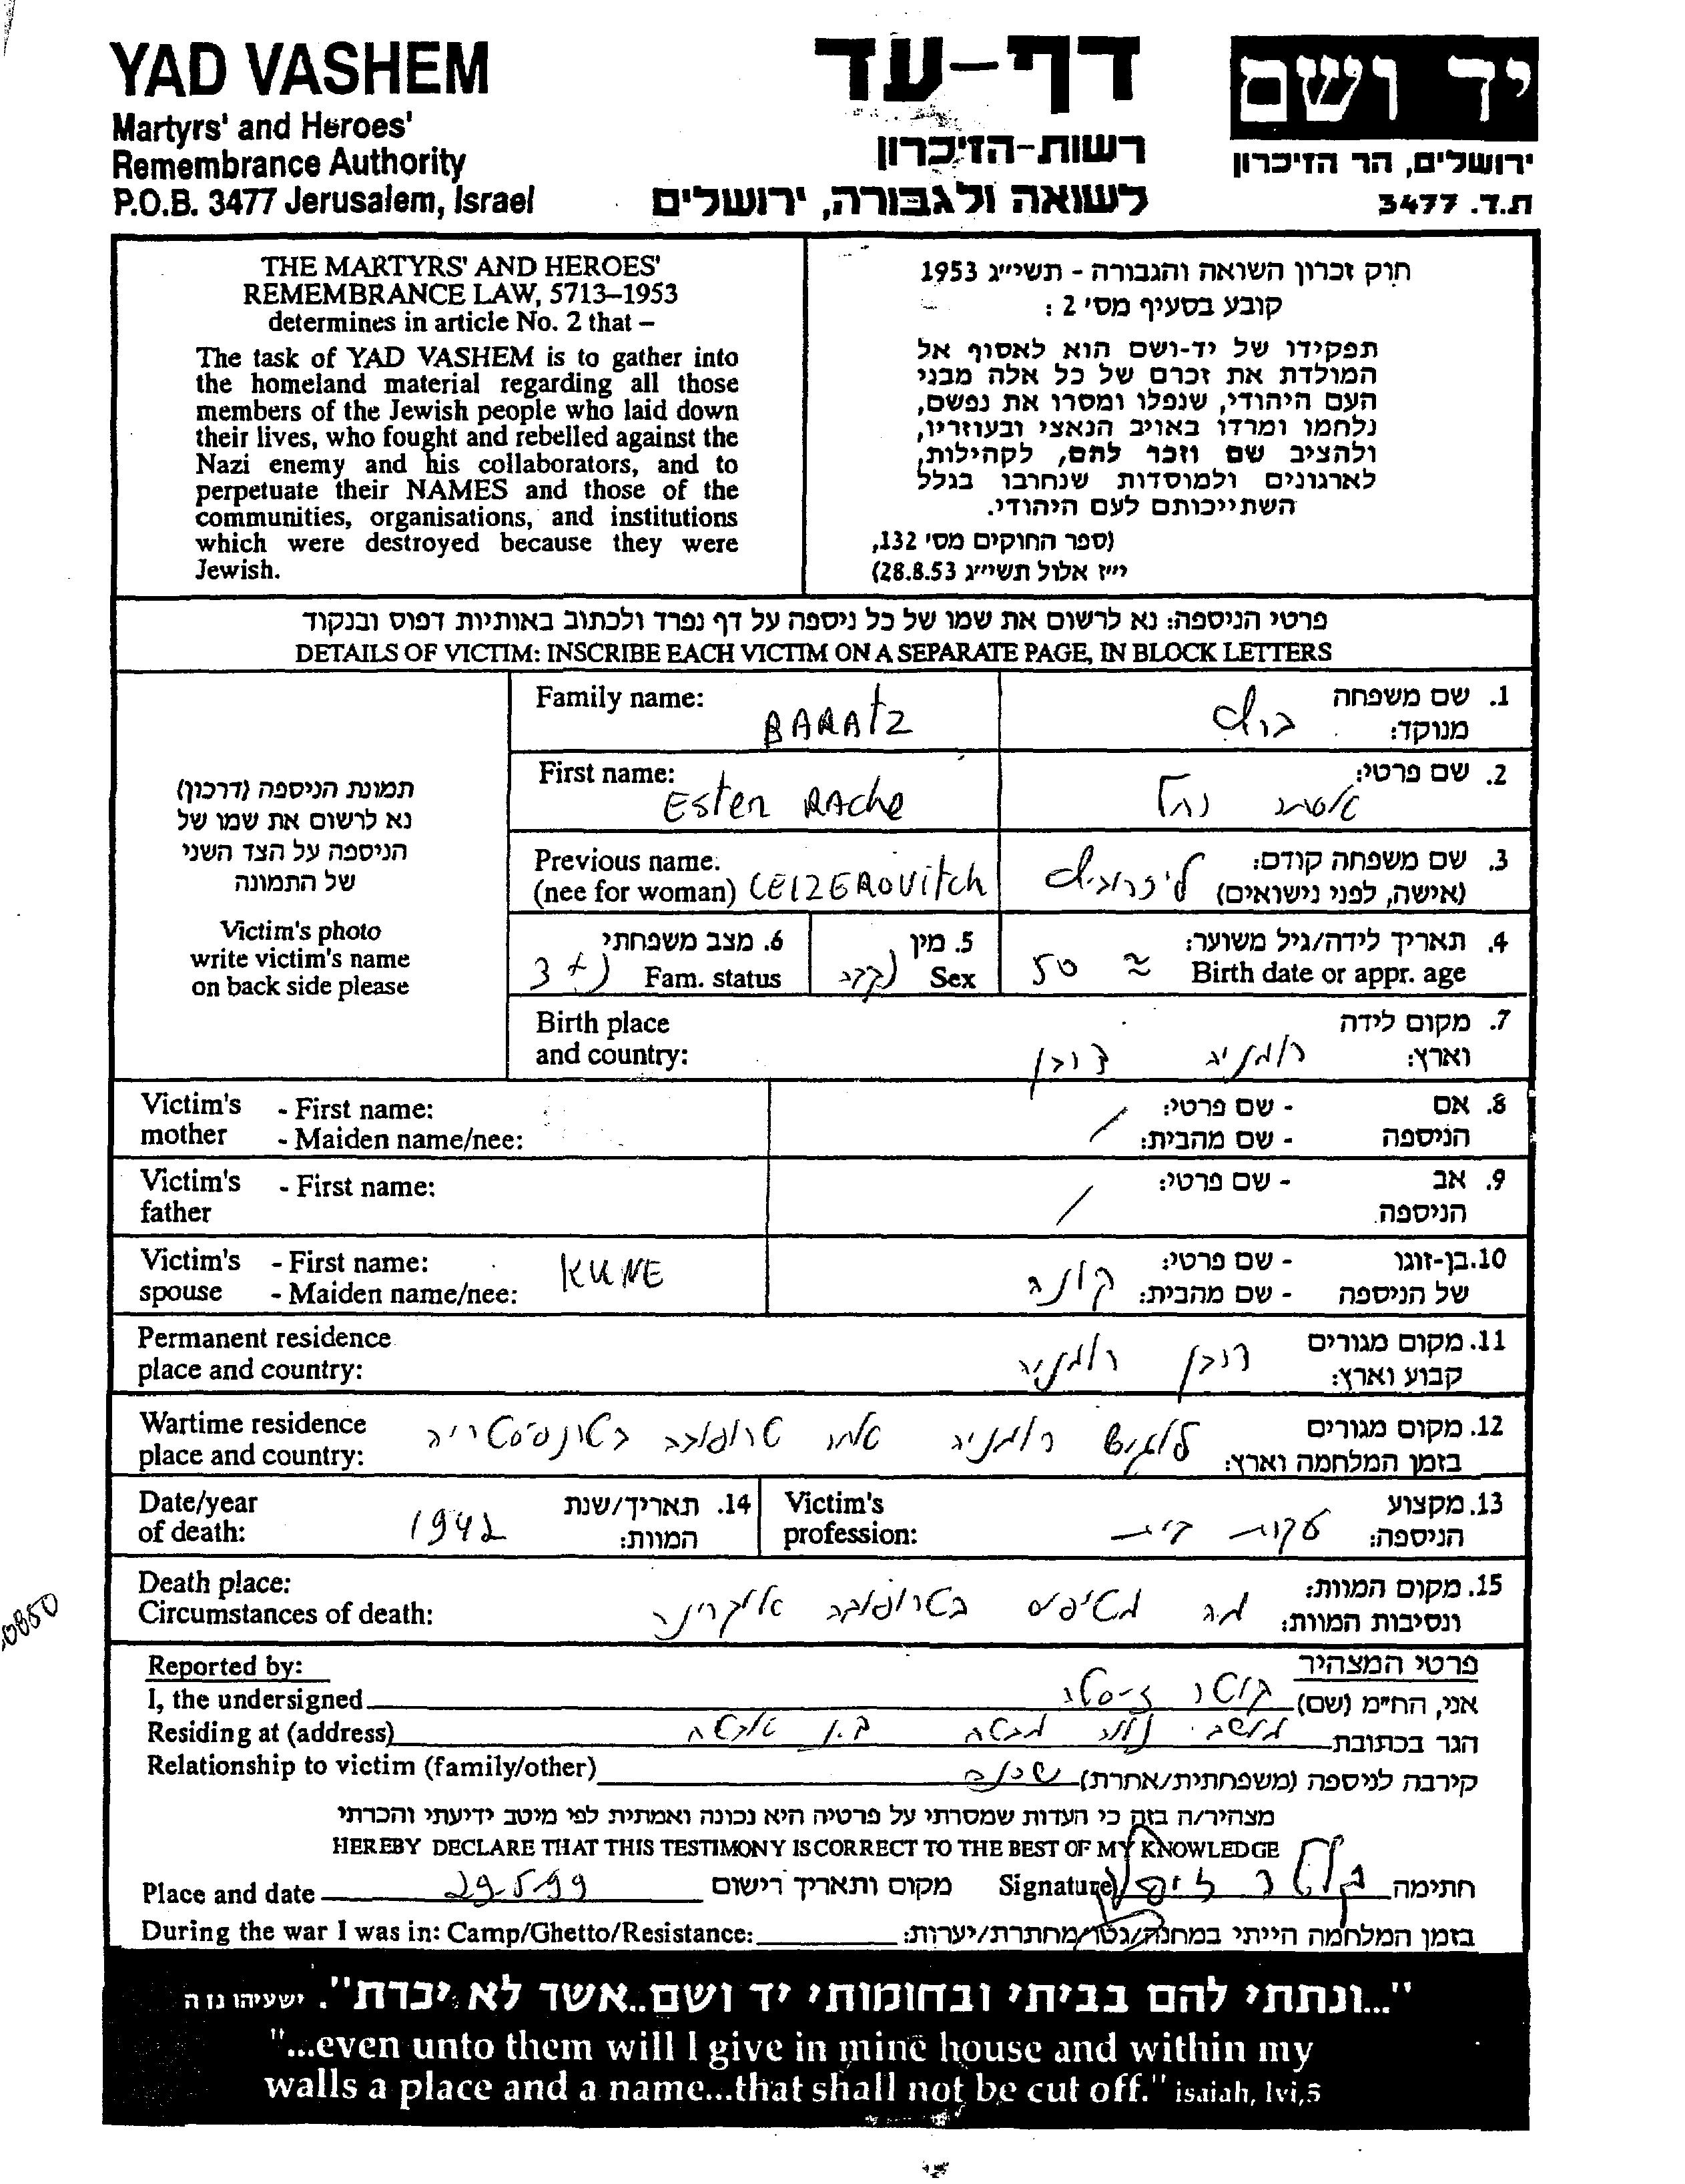 YAD VASHEM
Martyrs' and Heroes'
Remembrance Authority
P.O.B. 3477 Jerusalem, Israel
דף-עד
רשות-הזיכרון
לשואה ולגבורה, ירושלים
יד ושם
ירושלים, הר הזיכרון
ת.ד. 3477
THE MARTYRS' AND HEROES'
REMEMBRANCE LAW, 5713–1953
determines in article No. 2 that –
The task of YAD VASHEM is to gather into
the homeland material regarding all those
members of the Jewish people who laid down
their lives, who fought and rebelled against the
Nazi enemy and his collaborators, and to
perpetuate their NAMES and those of the
communities, organisations, and institutions
which were destroyed because they were
Jewish.
חוק זכרון השואה והגבורה - תשי״ג 1953
קובע בסעיף מס׳ 2 :
תפקידו של יד-ושם הוא לאסוף אל
המולדת את זכרם של כל אלה מבני
העם היהודי, שנפלו ומסרו את נפשם,
נלחמו ומרדו באויב הנאצי ובעוזריו,
ולהציב שם וזכר להם, לקהילות,
לארגונים ולמוסדות שנחרבו בגלל
השתייכותם לעם היהודי.
(ספר החוקים מס׳ 132,
י״ז אלול תשי״ג 28.8.53)
פרטי הניספה: נא לרשום את שמו של כל ניספה על דף נפרד ולכתוב באותיות דפוס ובנקוד
DETAILS OF VICTIM: INSCRIBE EACH VICTIM ON A SEPARATE PAGE, IN BLOCK LETTERS
תמונת הניספה (דרכון)
נא לרשום את שמו של
הניספה על הצד השני
של התמונה
Victim's photo
write victim's name
on back side please
Family name: BARATZ
1. שם משפחה מנוקד: ברץ
First name: Ester Rache
2. שם פרטי: אסתר רחל
Previous name. (nee for woman) LEIZEROVITCH
3. שם משפחה קודם: (אישה, לפני נישואים) ליזרוביץ
6. מצב משפחתי Fam. status נ + 3
5. מין Sex נקבה
4. תאריך לידה/גיל משוער: Birth date or appr. age ≈ 50
Birth place and country:
7. מקום לידה וארץ: רומניה
Victim's mother - First name: - Maiden name/nee:
8. אם הניספה - שם פרטי: - שם מהבית: /
Victim's father - First name:
9. אב הניספה - שם פרטי: /
Victim's spouse - First name: - Maiden name/nee: KUNE
10. בן-זוגו של הניספה - שם פרטי: - שם מהבית: קונה
Permanent residence place and country:
11. מקום מגורים קבוע וארץ: רומניה
Wartime residence place and country:
12. מקום מגורים בזמן המלחמה וארץ: רומניה בטרנסניסטריה
Date/year of death:
14. תאריך/שנת המוות: 1942
Victim's profession:
13. מקצוע הניספה: עקרת בית
Death place:
Circumstances of death:
15. מקום המוות: ונסיבות המוות: מטיפוס אוקרינה
Reported by:
פרטי המצהיר
I, the undersigned
אני, הח״מ (שם)
Residing at (address)
הגר בכתובת מושב
Relationship to victim (family/other)
קירבה לניספה (משפחתית/אחרת) שכנה
מצהיר/ה בזה כי העדות שמסרתי על פרטיה היא נכונה ואמתית לפי מיטב ידיעתי והכרתי
HEREBY DECLARE THAT THIS TESTIMONY IS CORRECT TO THE BEST OF MY KNOWLEDGE
Place and date 29-5-99 מקום ותאריך רישום
Signature חתימה
During the war I was in: Camp/Ghetto/Resistance:
בזמן המלחמה הייתי במחנה/גטו/מחתרת/יערות:
"...ונתתי להם בביתי ובחומותי יד ושם..אשר לא יכרת". ישעיהו נו ה
"...even unto them will I give in mine house and within my
walls a place and a name...that shall not be cut off." isaiah, lvi,5